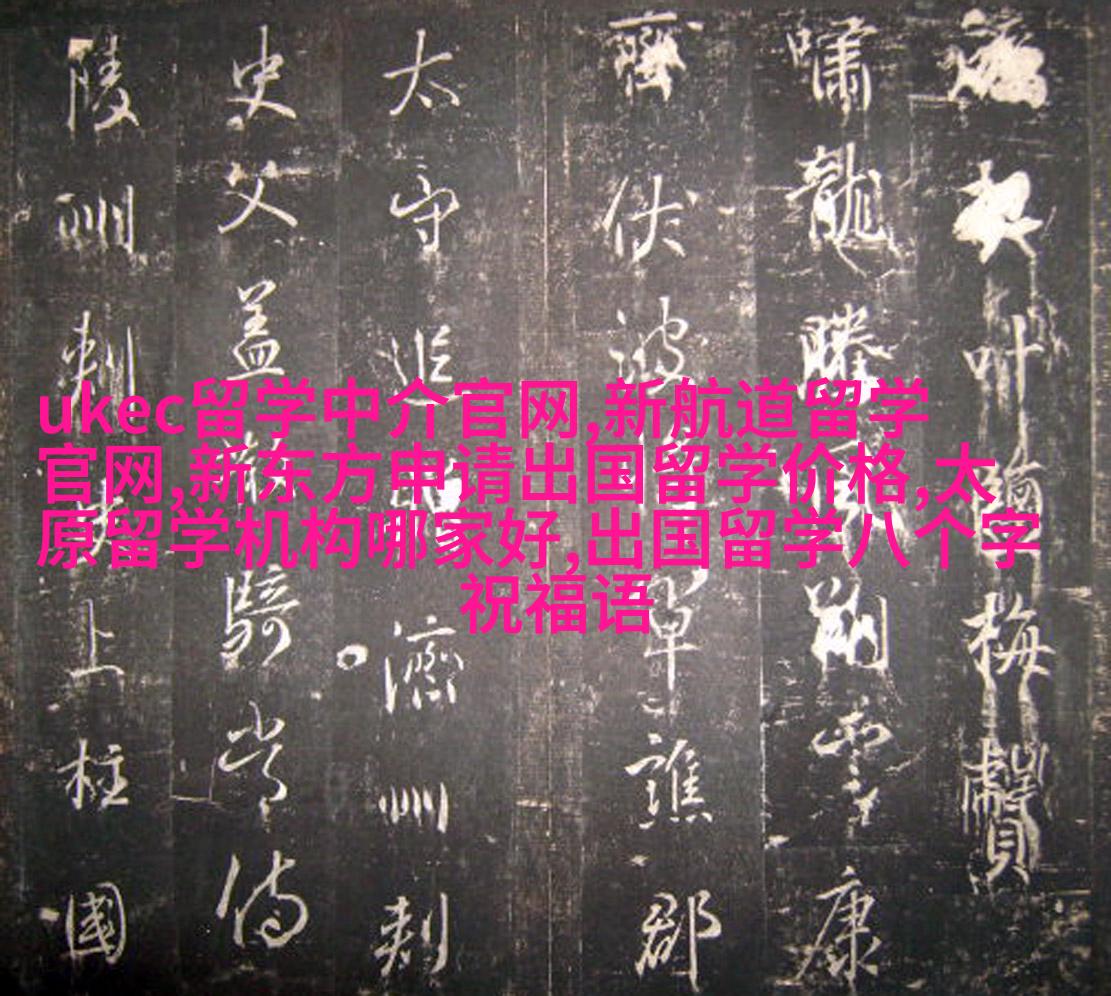 ukec留学中介官网,新航道留学
官网,新东方申请出国留学价格,太
原留学机构哪家好,出国留学八个字
祝福语
契叶梅贊
嘯龍騰康
齊伏波譙郡
太守濟州刺
史父蓋騎常侍
陵州刺上柱國